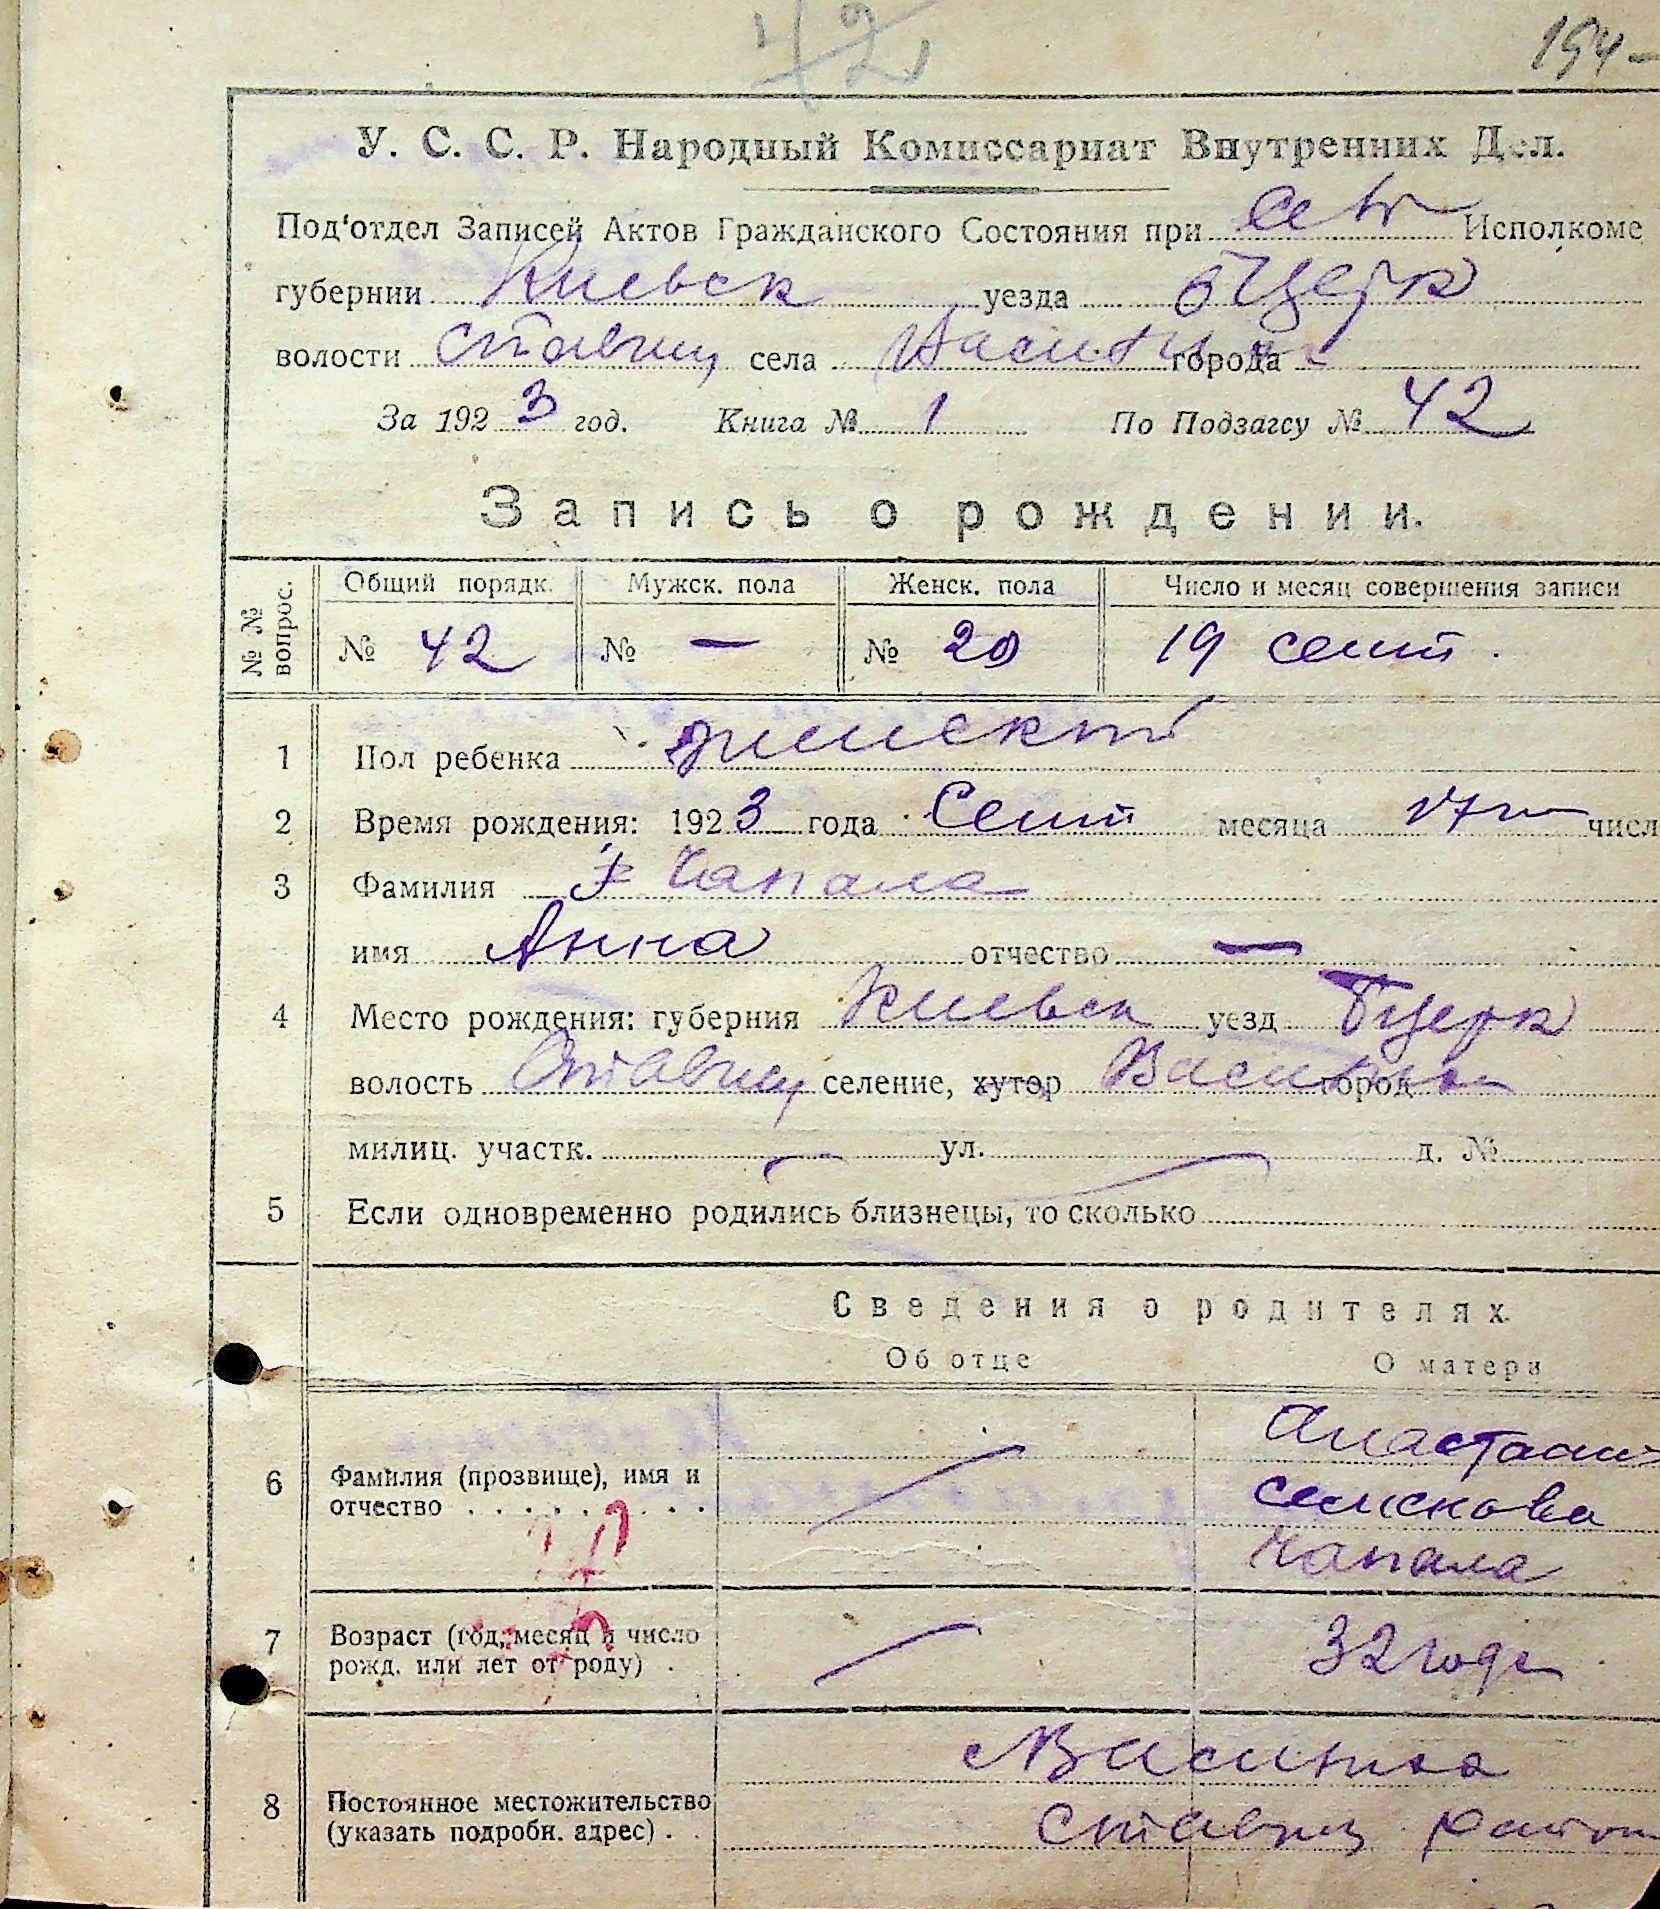 42
194
У. С. С. Р. Народный Комиссариат Внутренних Дел.
Под'отдел Записей Актов Гражданского Состояния при Исполкоме
губернии Киевск уезда бЦерк
волости Ставищ села города
За 1923 год. Книга № 1 По Подзагсу № 42
Запись о рождении.
№№ вопрос. Общий порядк. Мужск. пола Женск. пола Число и месяц совершения записи
№ 42 № — № 20 19 сент.
1 Пол ребенка женский
2 Время рождения: 1923 года Сент месяца 17го числ
3 Фамилия Чапала
имя Анна отчество —
4 Место рождения: губерния Киевск уезд бЦерк
волость Ставищ селение, хутор город
милиц. участк. ул. д. №
5 Если одновременно родились близнецы, то сколько
Сведения о родителях.
Об отце О матери
6 Фамилия (прозвище), имя и
отчество . . . . . . . . .
Анастасия
Чапала
7 Возраст (год, месяц и число
рожд. или лет от роду) .
32 года
8 Постоянное местожительство
(указать подробн. адрес) .
Ставищ район